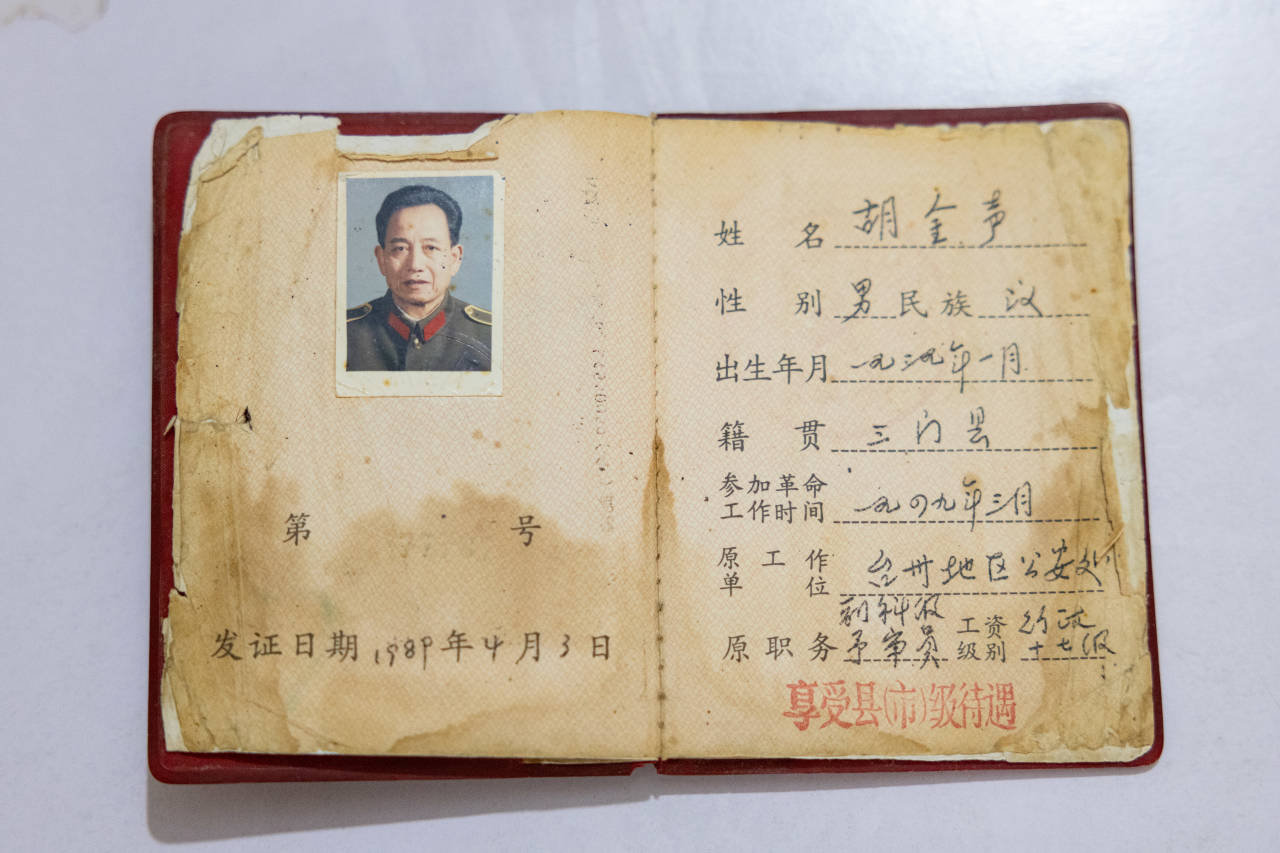 第 号
发证日期 1989年4月3日
姓名 胡金声
性别 男 民族 汉
出生年月 一九三九年一月
籍贯 三门县
参加革命
工作时间 一九四九年三月
原工作
单位 台州地区公安处
副科级
原职务 予审员
工资
级别 行政
十七级
享受县(市)级待遇